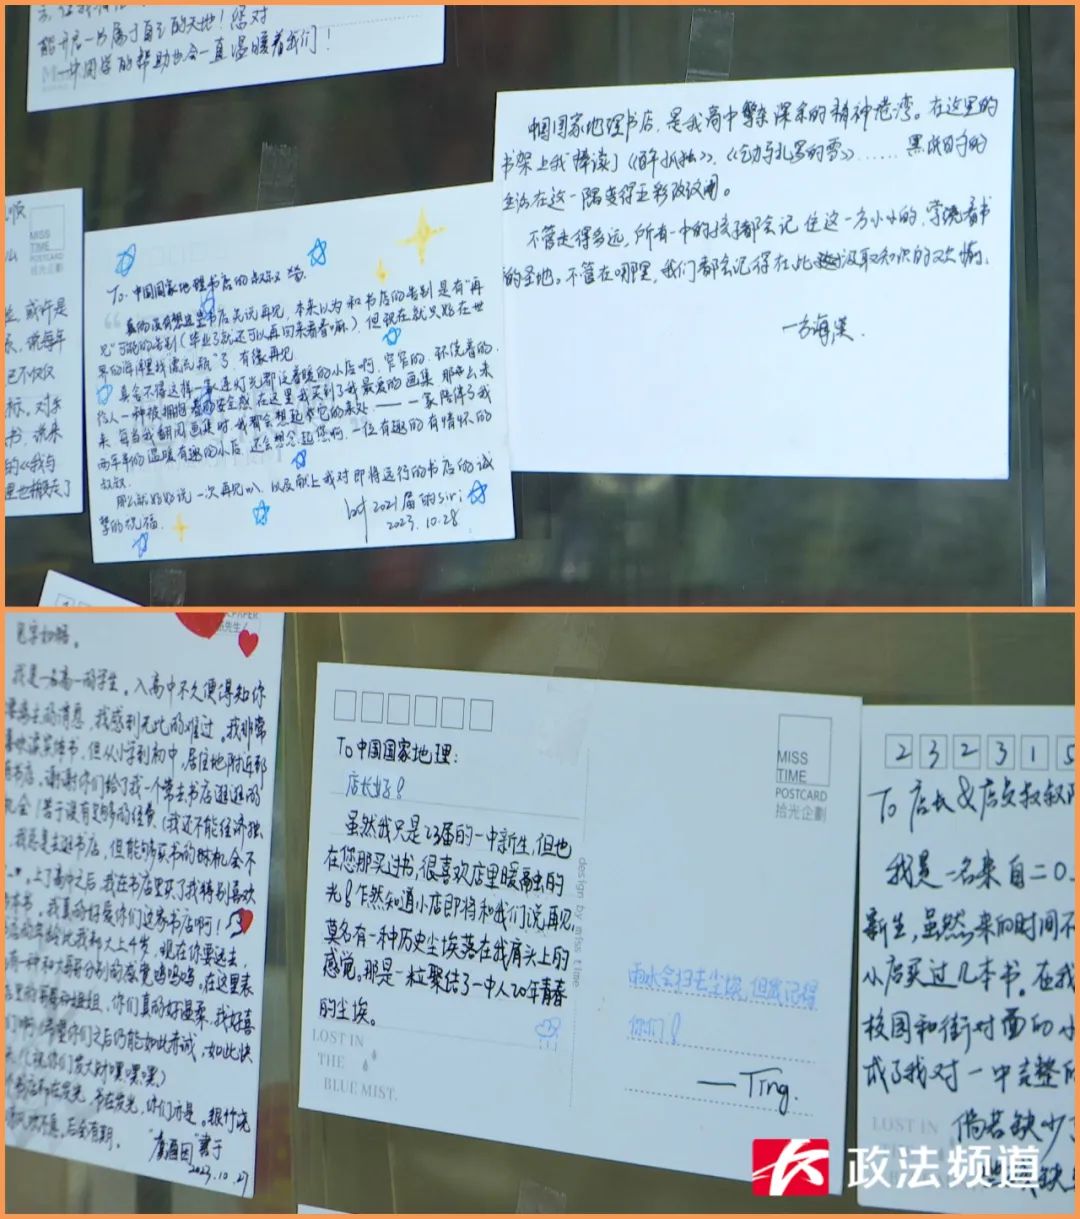 能开启一片属于自己的天地！您对
一中同学的帮助也会一直温暖着我们！
中国国家地理书店，是我高中繁杂课余的精神港湾。在这里的
书架上我捧读了《百年孤独》、《乞力马扎罗的雪》……
生活在这一隅变得五彩
不管走得多远，所有一中的孩子都会记住这一方小小的，
的圣地。不管在哪里，我们都会记得在此汲取知识的
MISS
TIME
POSTCARD
拾光企劃
或许是
说每年
已不仅仅
标，对乐
书，说来
的《我与
To：中国国家地理书店的叔叔
真的没有想过是书店先说再见，本来以为和书店的告别是有“再
见”可能的告别（毕业了就还可以再回来看看嘛），但现在就只好在世
界的海洋里找漂流瓶了，有缘再见
真舍不得这样一家连灯光都泛着暖的小店啊，窄窄的，环绕着的，
给人一种被拥抱着的安全感，在这里我买到了我最爱的画集，那
来，每当我翻阅画集时，我都会想起它的来处——一家陪伴了我
两年半的温暖有趣的小店，还会想念起您啊，一位有趣的有情怀的
叔叔
那么就好好说一次再见叭，以及献上我对即将远行的书店的诚
挚的祝福
by 2021届的Siri
2023.10.28
见字如晤。
我是一名高一的学生。入高中不久便得知你
的消息，我感到无比的难过。我非常
喜欢读实体书，但从小学到初中，居住地附近都
书店。谢谢你们给了我一个常去书店逛逛的
机会！苦于没有足够的经费（我还不能经济独
我总是去逛书店，但能够买书的机会不
上了高中之后，我在书店里买了我特别喜欢
本书。我真的好爱你们这家书店啊！
店的年龄比我都大上4岁，现在你要远去，
有一种和大哥哥分别的感觉呜呜呜。在这里表
姐姐，你们真的好温柔，我好喜
希望你们之后仍能如此赤诚，如此快
祝你们发大财嘿嘿嘿）
书店都在发光，书在发光，你们亦是。
后会有期。
书于
2023.10.27
To 中国国家地理：
店长好！
虽然我只是23届的一中新生，但也
在您那买过书，很喜欢店里暖融融的
光！乍然知道小店即将和我们说再见，
莫名有一种历史尘埃落在我肩头上的
感觉。那是一粒聚结了一中人20年青春
的尘埃。
LOST IN
THE
BLUE MIST.
design by miss time
MISS
TIME
POSTCARD
拾光企劃
雨水会扫去尘埃，但我记得
你们！
—Ting.
232315
TO 店长&店员叔叔
我是一名来自二〇
新生，虽然来的时间不
小店买过几本书。在我
校园和街对面的小
成了我对一中完整的
LOST IN
倘若缺少了
政法频道